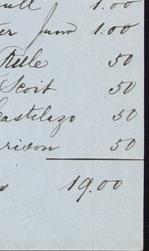 ull 1.00
er Juno 1.00
Rule 50
Scoit 50
Castelazo 50
rison 50
s 19.00